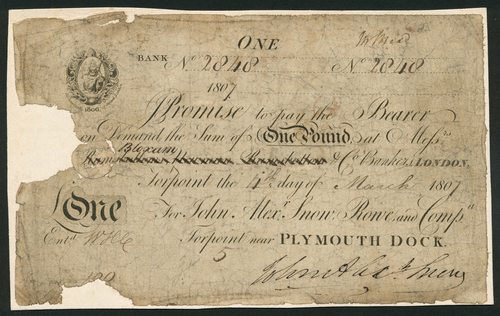 ONE
BANK No 2848 No 2848
1800
1807
I Promise to pay the Bearer
on Demand the Sum of One Pound, at Messrs
Bloxum
& Co Bankers LONDON
Torpoint the 4th day of March 1807
£One For John Alexr Snow, Rowe, and Compy
Entd Torpoint near PLYMOUTH DOCK.
5
John Alexr Snow